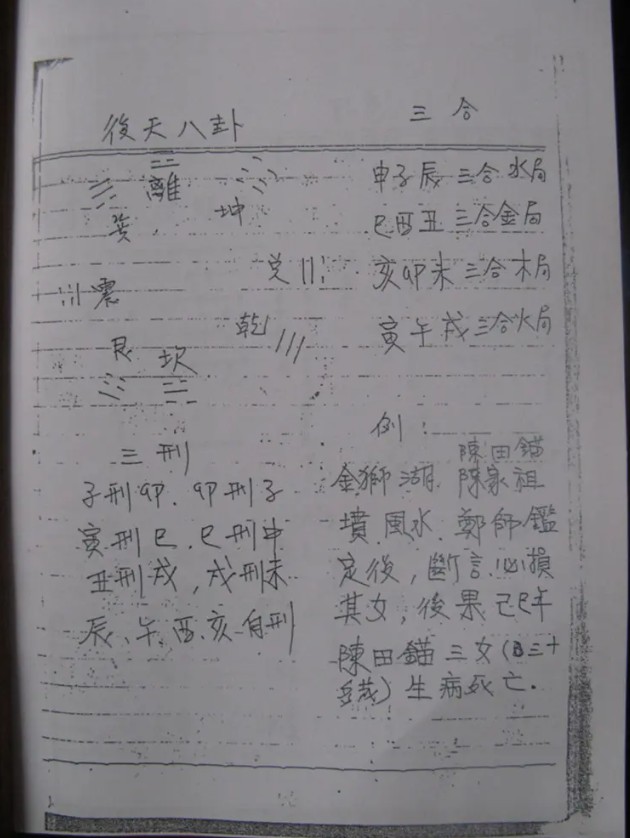 後天八卦
離
巽
坤
震
兌
乾
艮
坎
三刑
子刑卯、卯刑子
寅刑巳、巳刑申
丑刑戌,戌刑未
辰、午、酉、亥自刑
三合
申子辰三合水局
巳酉丑三合金局
亥卯未三合木局
寅午戌三合火局
例:
陳田錨
金獅湖 陳家祖
墳風水、鄭師鑑
定後,斷言必損
其女,後果己巳年
陳田錨三女(已三十
多歲)生病死亡.